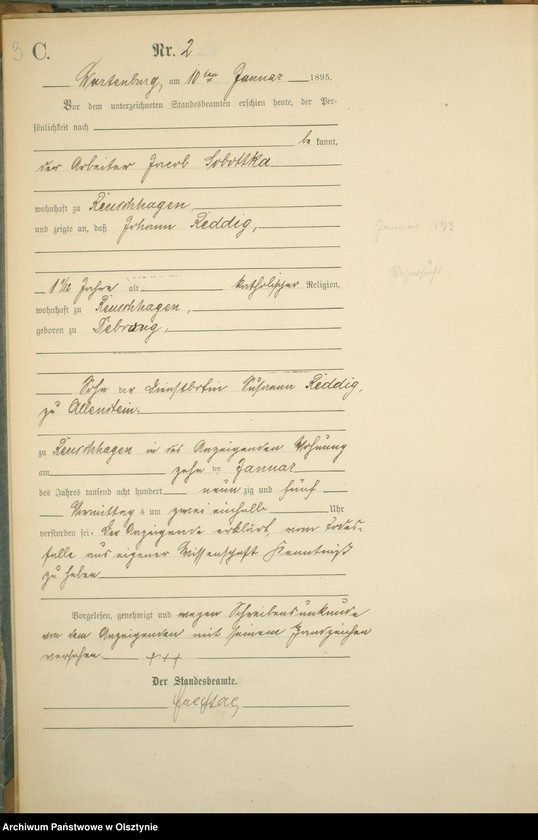 3 C. Nr. 2
Wartenburg, am 10ten Januar 1895.
Vor dem unterzeichneten Standesbeamten erschien heute, der Per-
sönlichkeit nach
be kannt,
der Arbeiter Jacob Sobottka
wohnhaft zu Reuschhagen,
und zeigte an, daß Johann Reddig,
1 1/12 Jahre alt katholischer Religion,
wohnhaft zu Reuschhagen,
geboren zu Debrong,
Sohn der Dienstbotin Susanna Reddig,
zu Allenstein.
zu Reuschhagen in des Anzeigenden Wohnung
am zehn ten Januar
des Jahres tausend acht hundert neun zig und fünf
Vormittags um zwei einhalb Uhr
verstorben sei. Der Anzeigende erklärt, vom Todes-
falle aus eigener Wissenschaft Kenntniß
zu haben
Vorgelesen, genehmigt und wegen Schreibensunkunde
von dem Anzeigenden mit seinem Handzeichen
versehen. +++
Der Standesbeamte.
Freitag
Januar
Archiwum Państwowe w Olsztynie